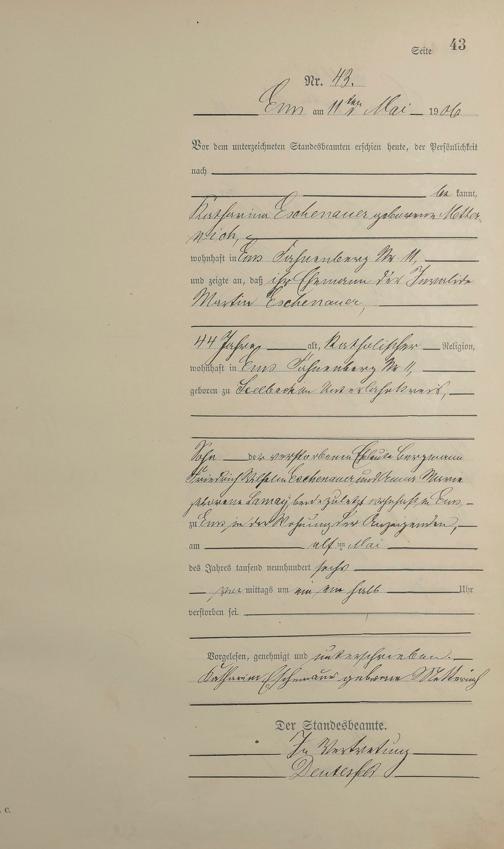 Seite 43
Nr. 43.
Ems am 11ten Mai 1906
Vor dem unterzeichneten Standesbeamten erschien heute, der Persönlichkeit
nach
be kannt,
Katharina Eschenauer geborene Metter
nich,
wohnhaft in Ems Fahnenberg Nr 11,
und zeigte an, daß ihr Ehemann der Invalide
Martin Eschenauer,
44 Jahre alt, katholischer Religion,
wohnhaft in Ems Fahnenberg Nr 11,
geboren zu Seelbach im Unterlahnkreis,
Sohn der verstorbenen Eheleute Bergmann
Friedrich Wilhelm Eschenauer und Anna Marie
geborene beide zuletzt wohnhaft in Ems
zu Ems, in der Wohnung der Anzeigenden,
am elften Mai
des Jahres tausend neunhundert sechs
Vor mittags um ein ein halb Uhr
verstorben sei.
Vorgelesen, genehmigt und unterschrieben.
Katharina Eschenauer geborene Metternich
Der Standesbeamte.
In Vertretung